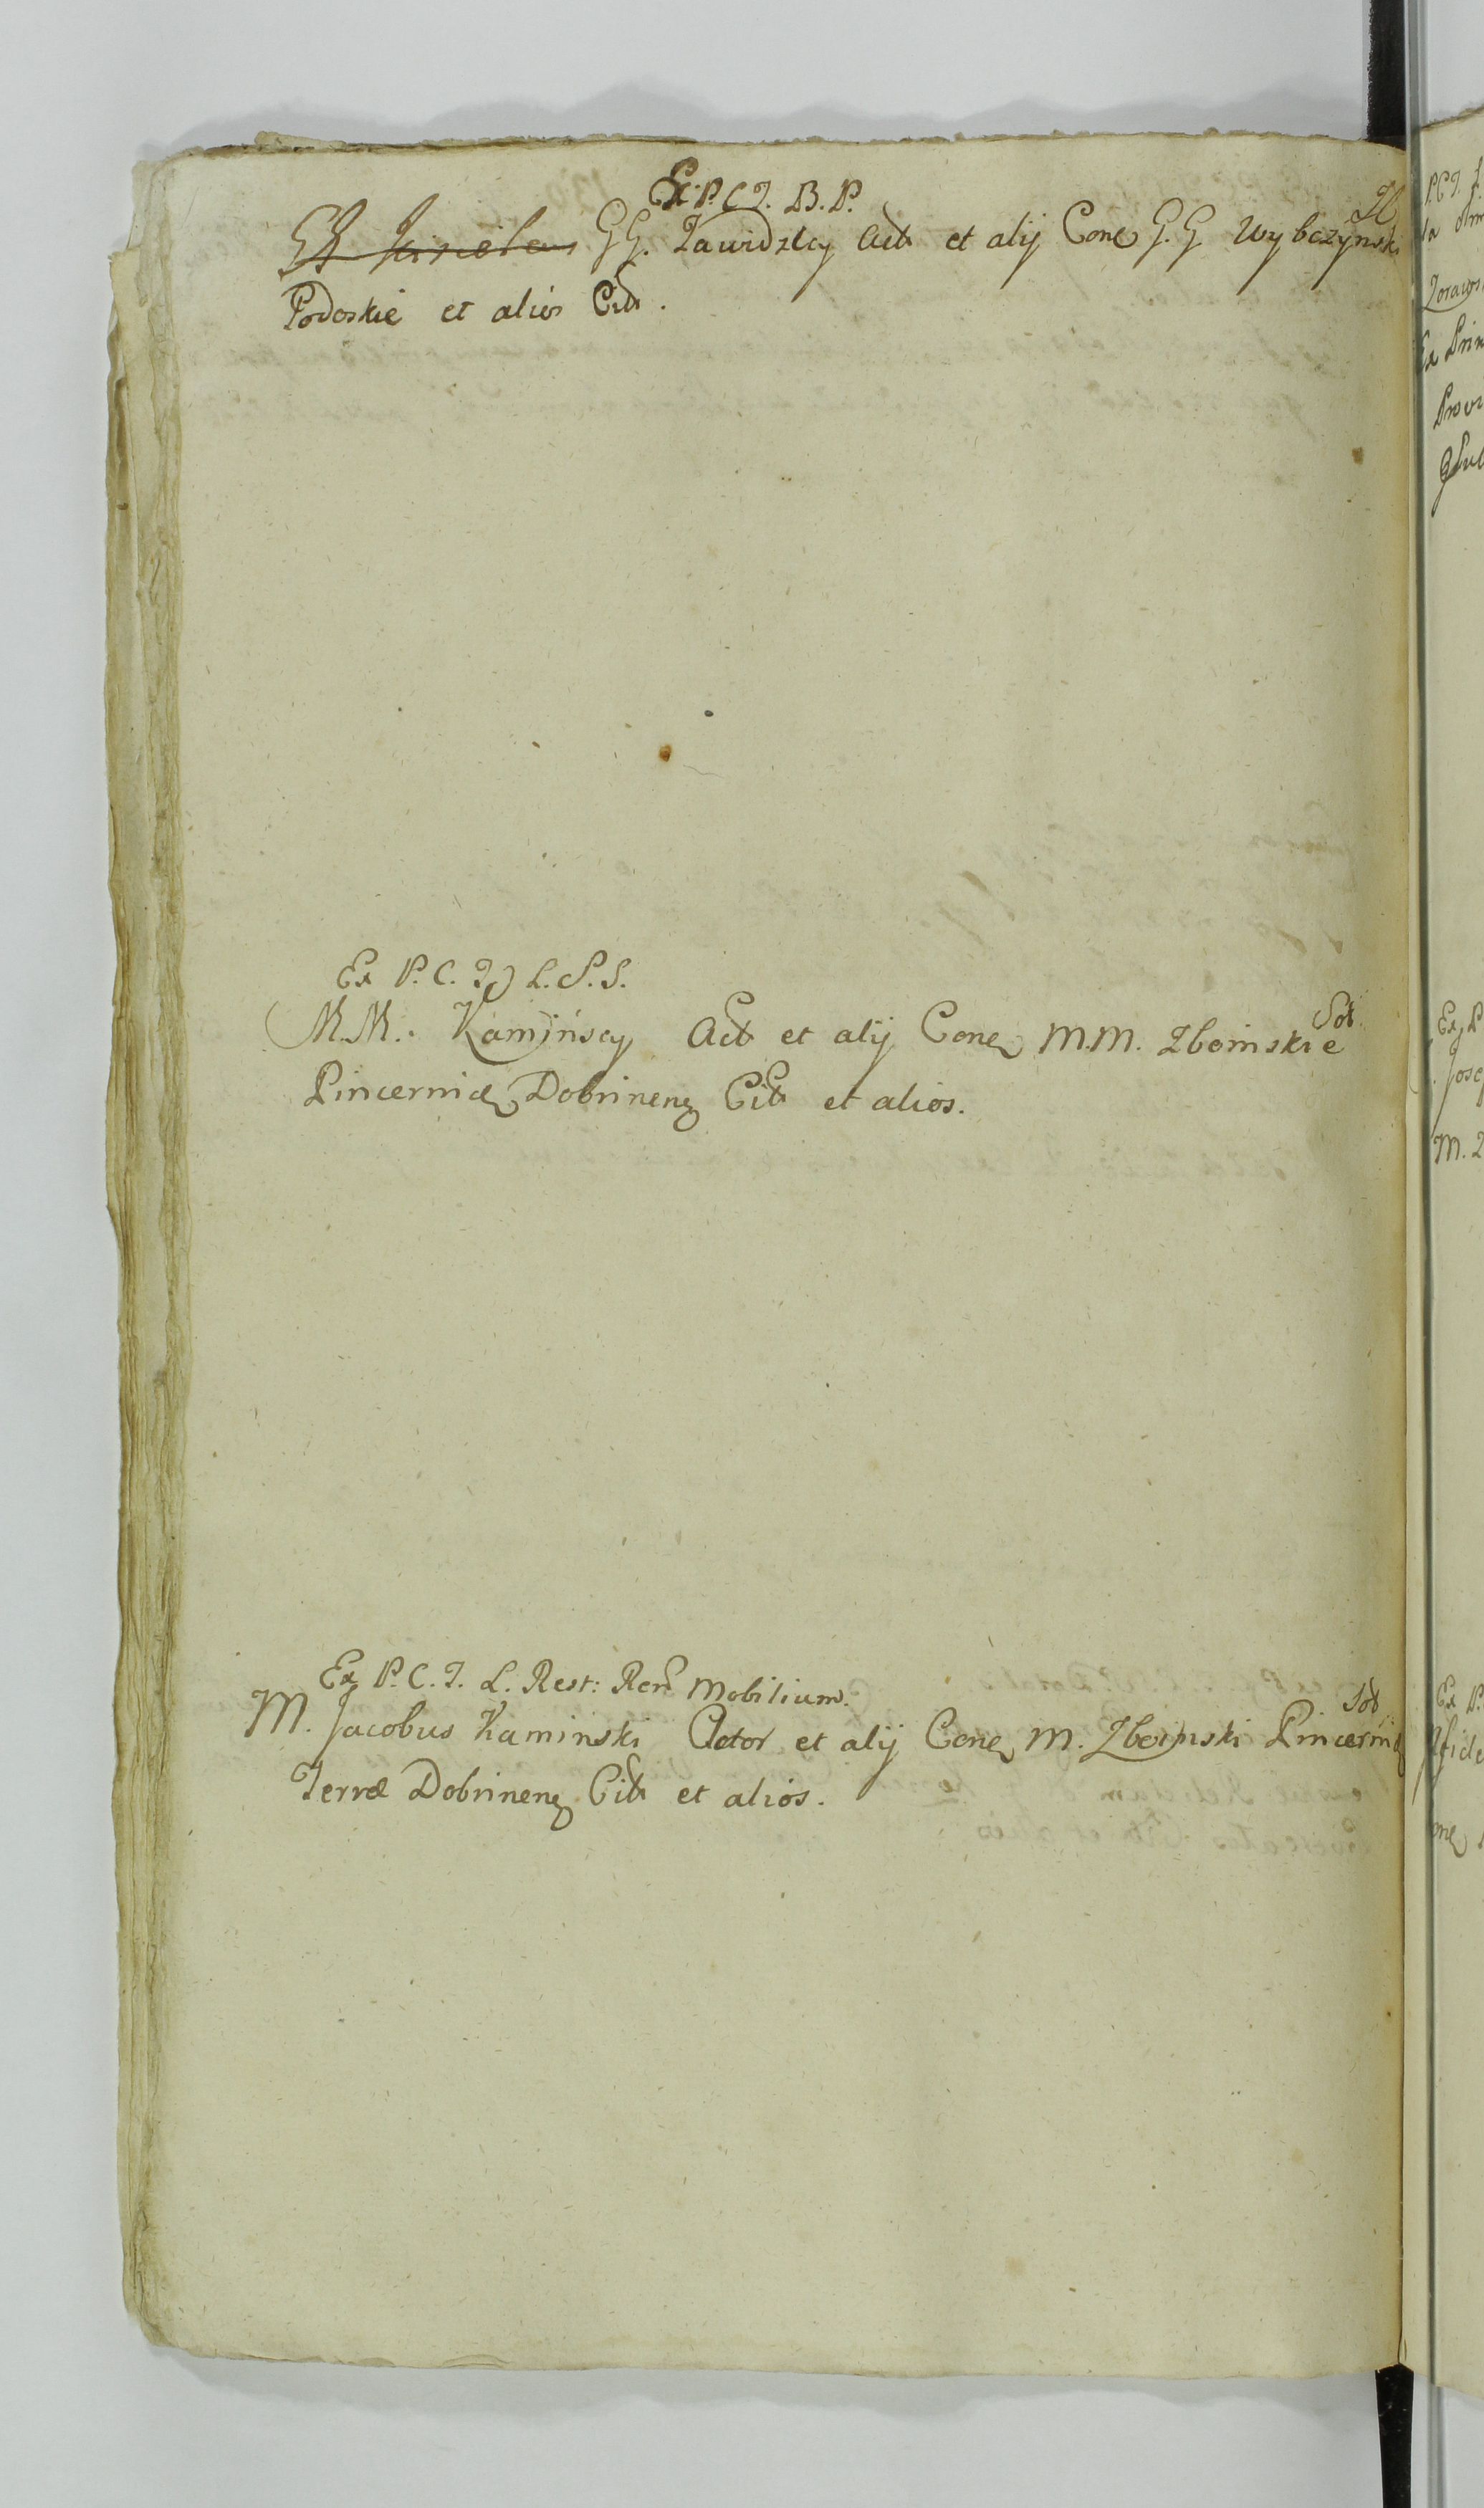 Ex P. C. T. B. P.
GG. Zawidzcy Act et alij Cone G. G Wybczynski
Podoskie et alios Citt.
Ex P. C. T. L. S. S.
M.M. Kamińscy Act et alij Cone M.M. Zboinskie
Pincernice Dobrinens Citt et alios.
Ex P. C. T. L. Rest: Rerū Mobilium.
M. Jacobus Kaminski Actor et alij Cone M. Zboinski Pincernā
Terræ Dobrinens Citt et alios.